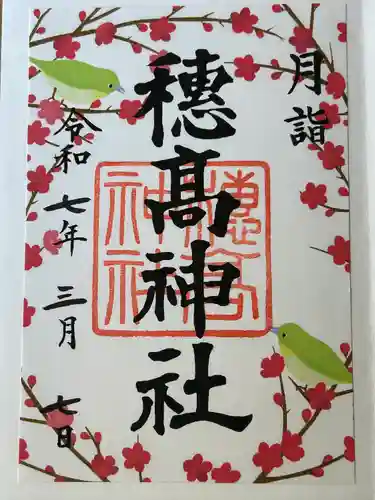 月詣
穂髙神社
穂高神社
令和七年三月七日